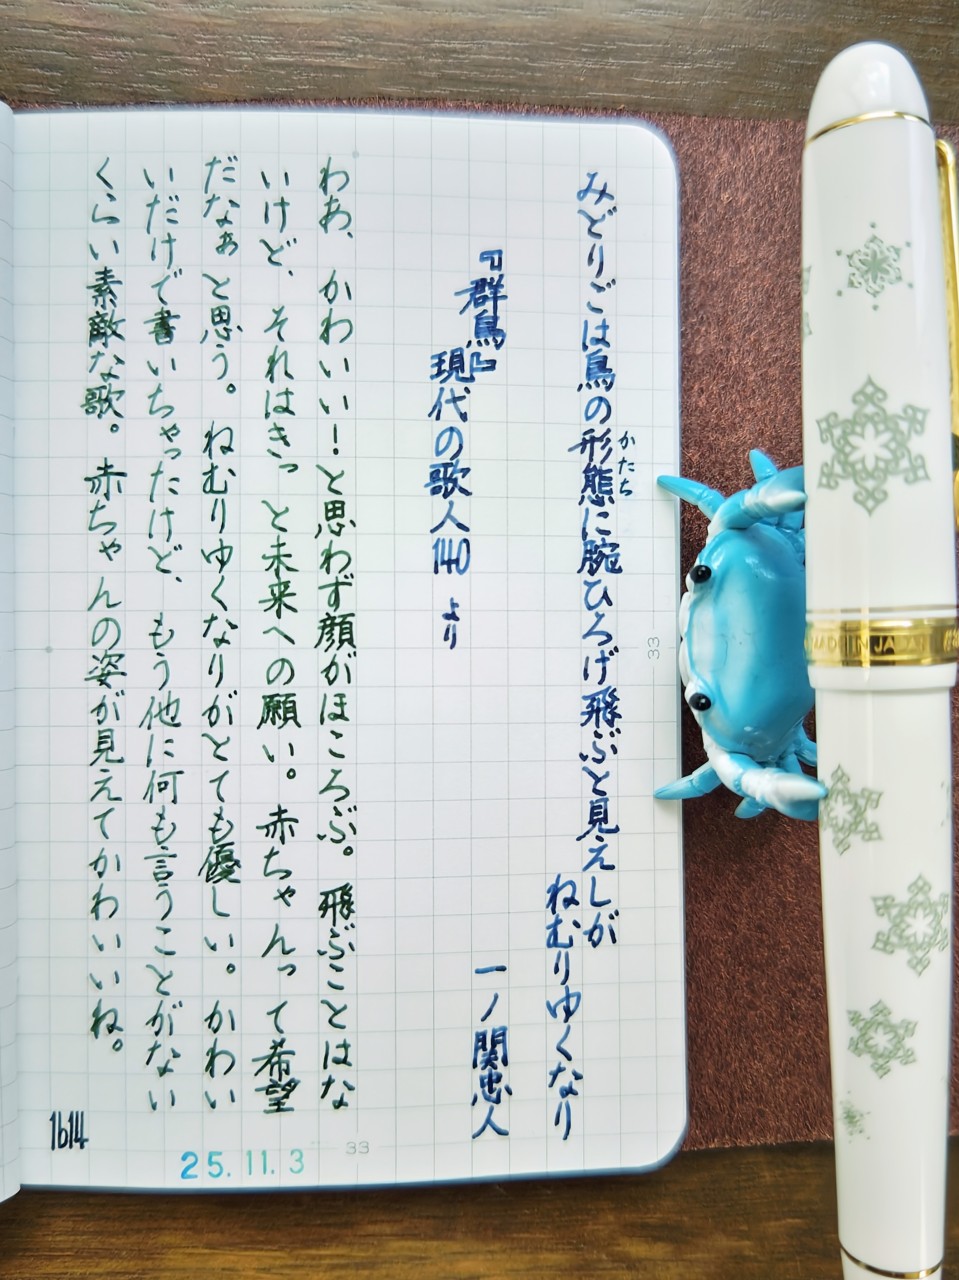 みどりごは鳥の形態に腕ひろげ飛ぶと見えしが
かたち
ねむりゆくなり
一ノ関忠人
『群鳥』
現代の歌人140 より
わあ、かわいい！と思わず顔がほころぶ。飛ぶことはな
いけど、それはきっと未来への願い。赤ちゃんって希望
だなぁと思う。ねむりゆくなりがとても優しい。かわい
いだけで書いちゃったけど、もう他に何も言うことがない
くらい素敵な歌。赤ちゃんの姿が見えてかわいいね。
1614
25.11.3
33
33
MADE IN JAPAN